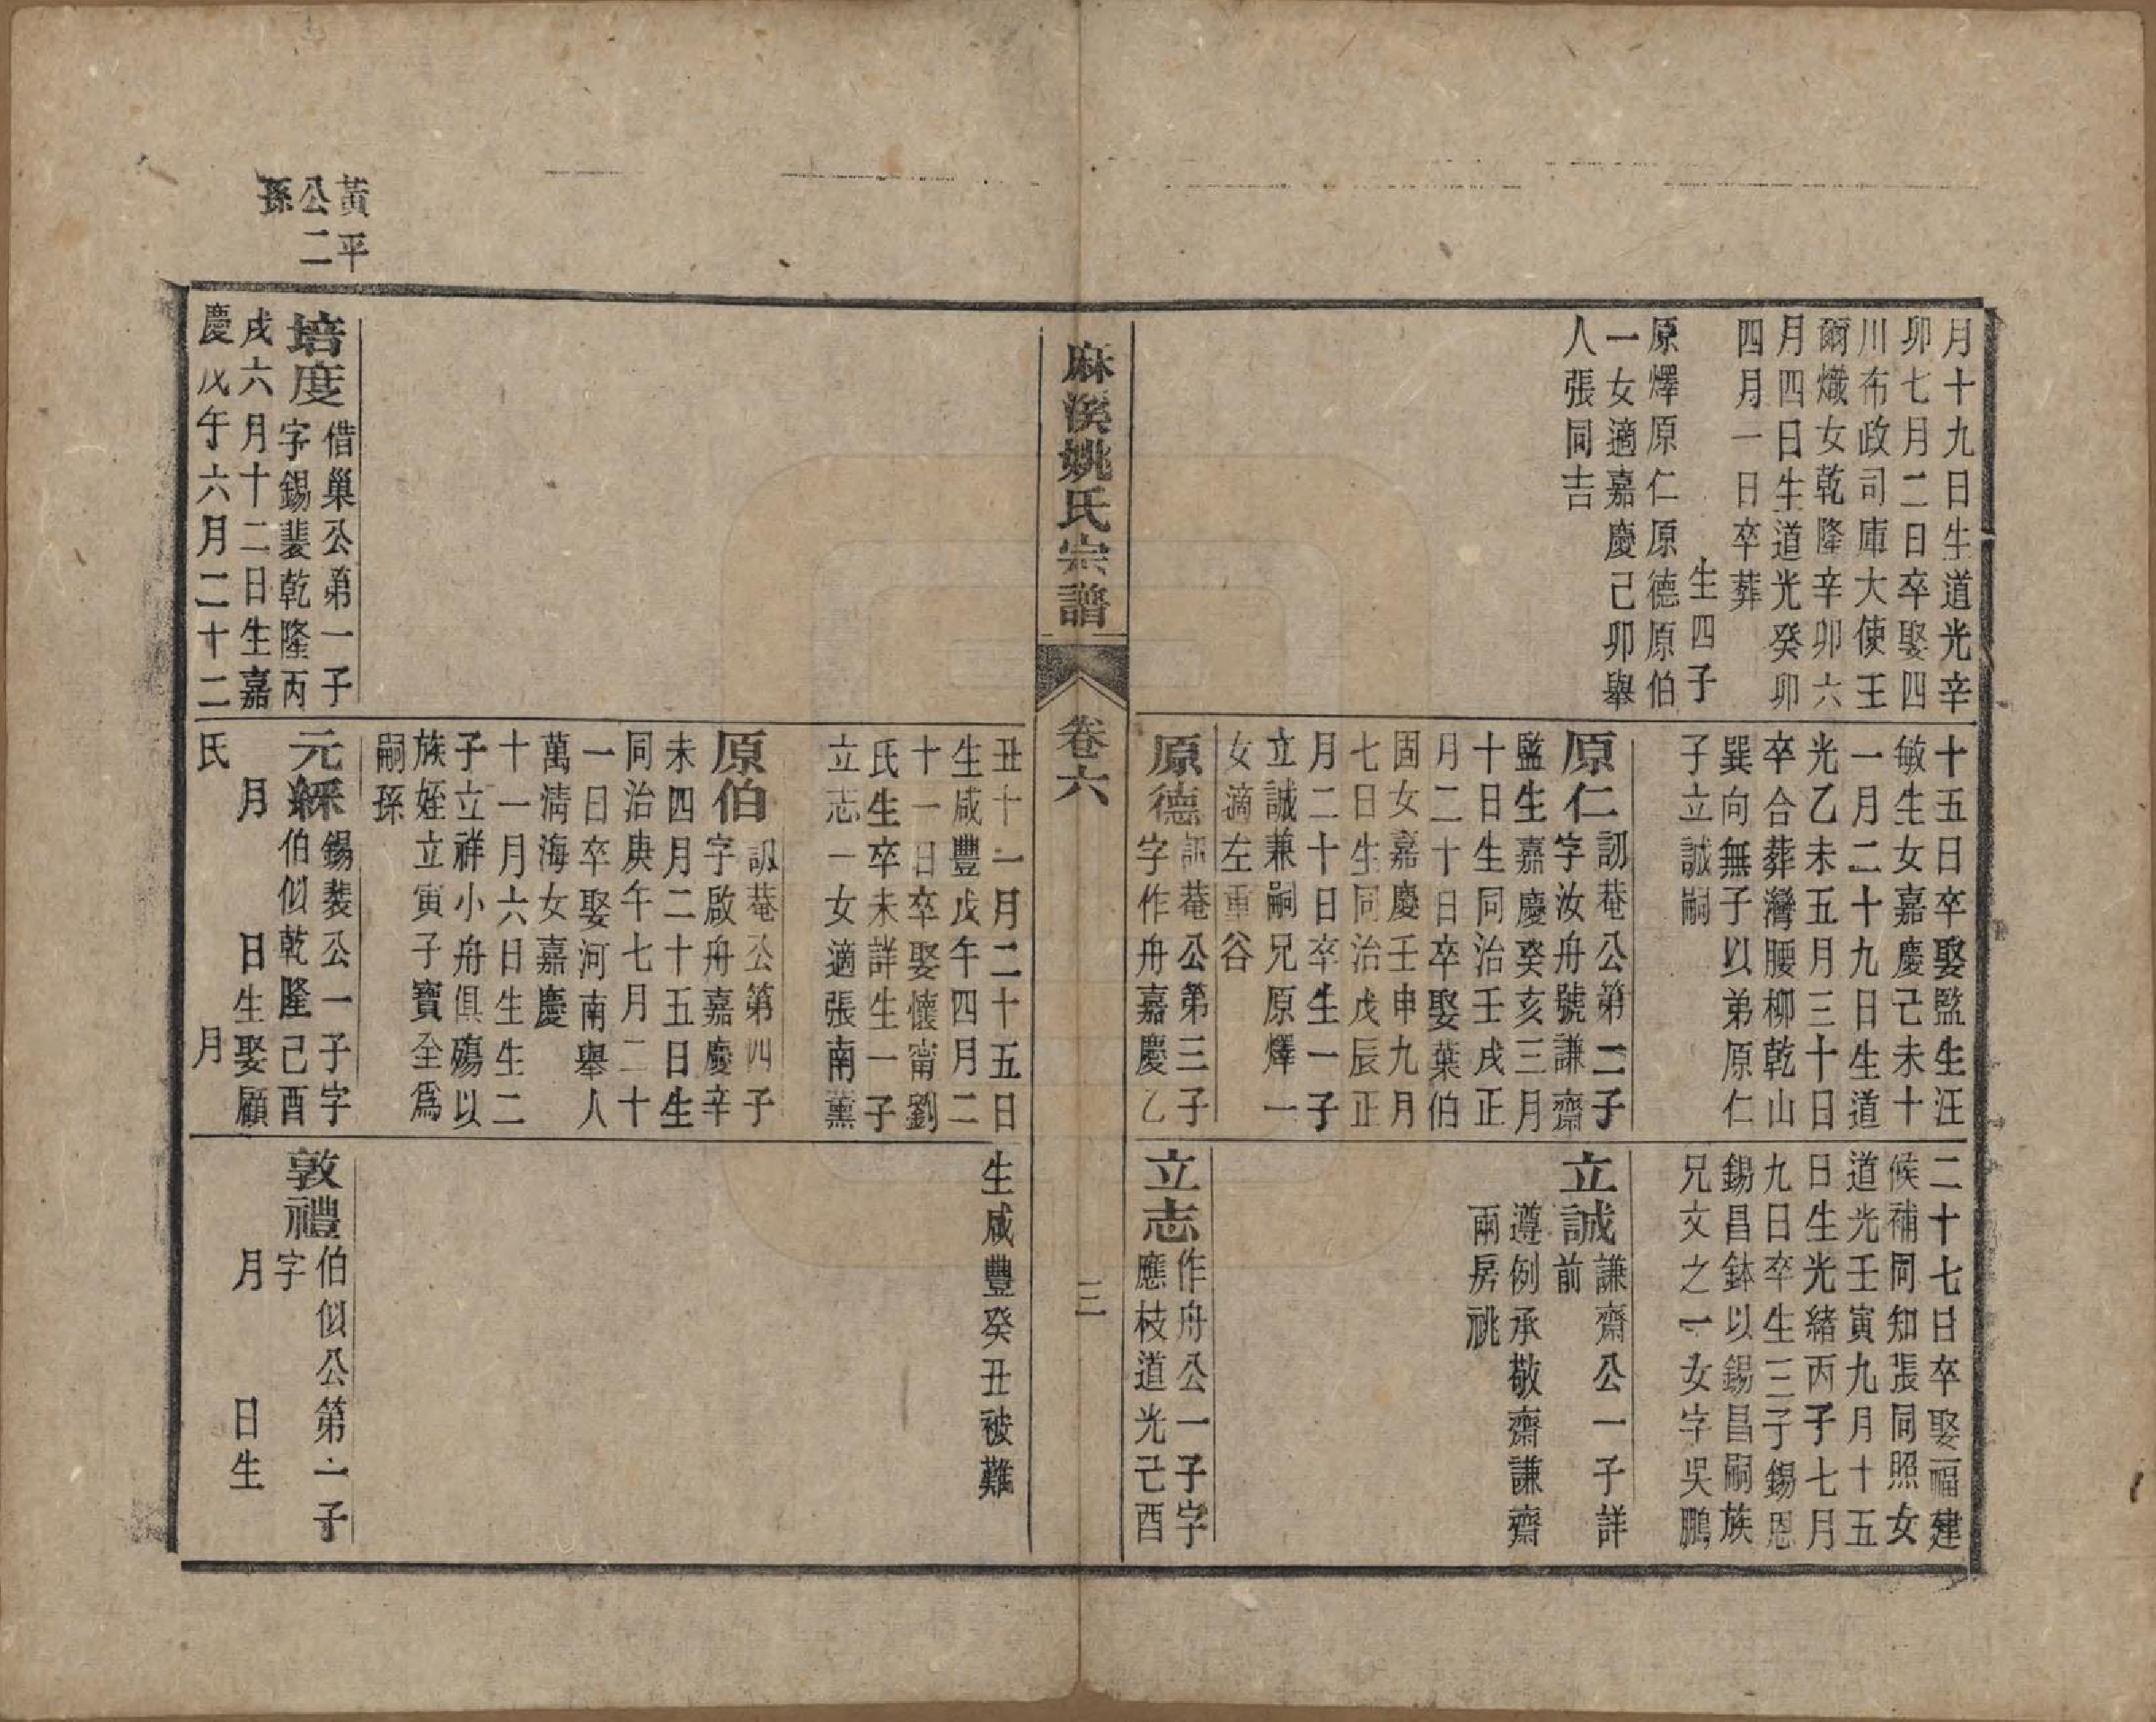 月十九日生道光辛
卯七月二日卒娶四
川布政司庫大使王
爾熾女乾隆辛卯六
月四日生道光癸卯
四月一日卒葬
生四子
原燡原仁原德原伯
一女適嘉慶己卯舉
人張同吉
十五日卒娶監生汪
敏生女嘉慶己未十
一月二十九日生道
光乙未五月三十日
卒合葬灣腰柳乾山
巽向無子以弟原仁
子立誠嗣
原仁
訒菴公第二子
字汝舟號謙齋
監生嘉慶癸亥三月
十日生同治壬戌正
月二十日卒娶葉伯
固女嘉慶壬申九月
七日生同治戊辰正
月二十日卒生一子
立誠兼嗣兄原燡一
女適左重谷
原德
訒菴公第三子
字作舟嘉慶乙
二十七日卒娶福建
候補同知張同照女
道光壬寅九月十五
日生光緒丙子七月
九日卒生三子錫恩
錫昌鉢以錫昌嗣族
兄文之一女字吳鵬
立誠
謙齋公一子詳
前
遵例承敬齋謙齋
兩房祧
立志
作舟公一子字
應枝道光己酉
麻溪姚氏宗譜
卷六
三
黃平
公二
孫
培度
借巢公第一子
字錫裴乾隆丙
戌六月十二日生嘉
慶戊午六月二十二
丑十一月二十五日
生咸豐戊午四月二
十一日卒娶懷甯劉
氏生卒未詳生一子
立志一女適張南薰
原伯
訒菴公第四子
字啟舟嘉慶辛
未四月二十五日生
同治庚午七月二十
一日卒娶河南舉人
萬淸海女嘉慶
十一月六日生生二
子立祥小舟俱殤以
族姪立寅子寶全爲
嗣孫
元綵
錫裴公一子字
伯似乾隆己酉
月 日生娶顧
氏 月
生咸豐癸丑被難
敦禮
伯似公第一子
字
月 日生